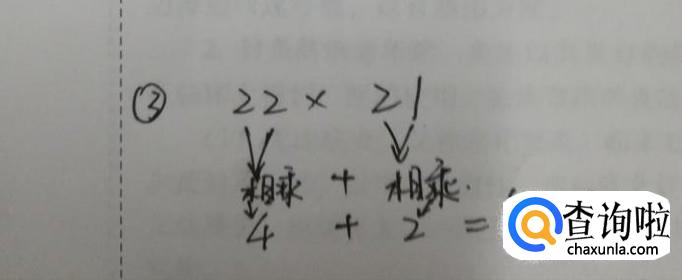 ③ 22 × 21
相乘 + 相乘
4 + 2 =
查询啦
chaxunla.com